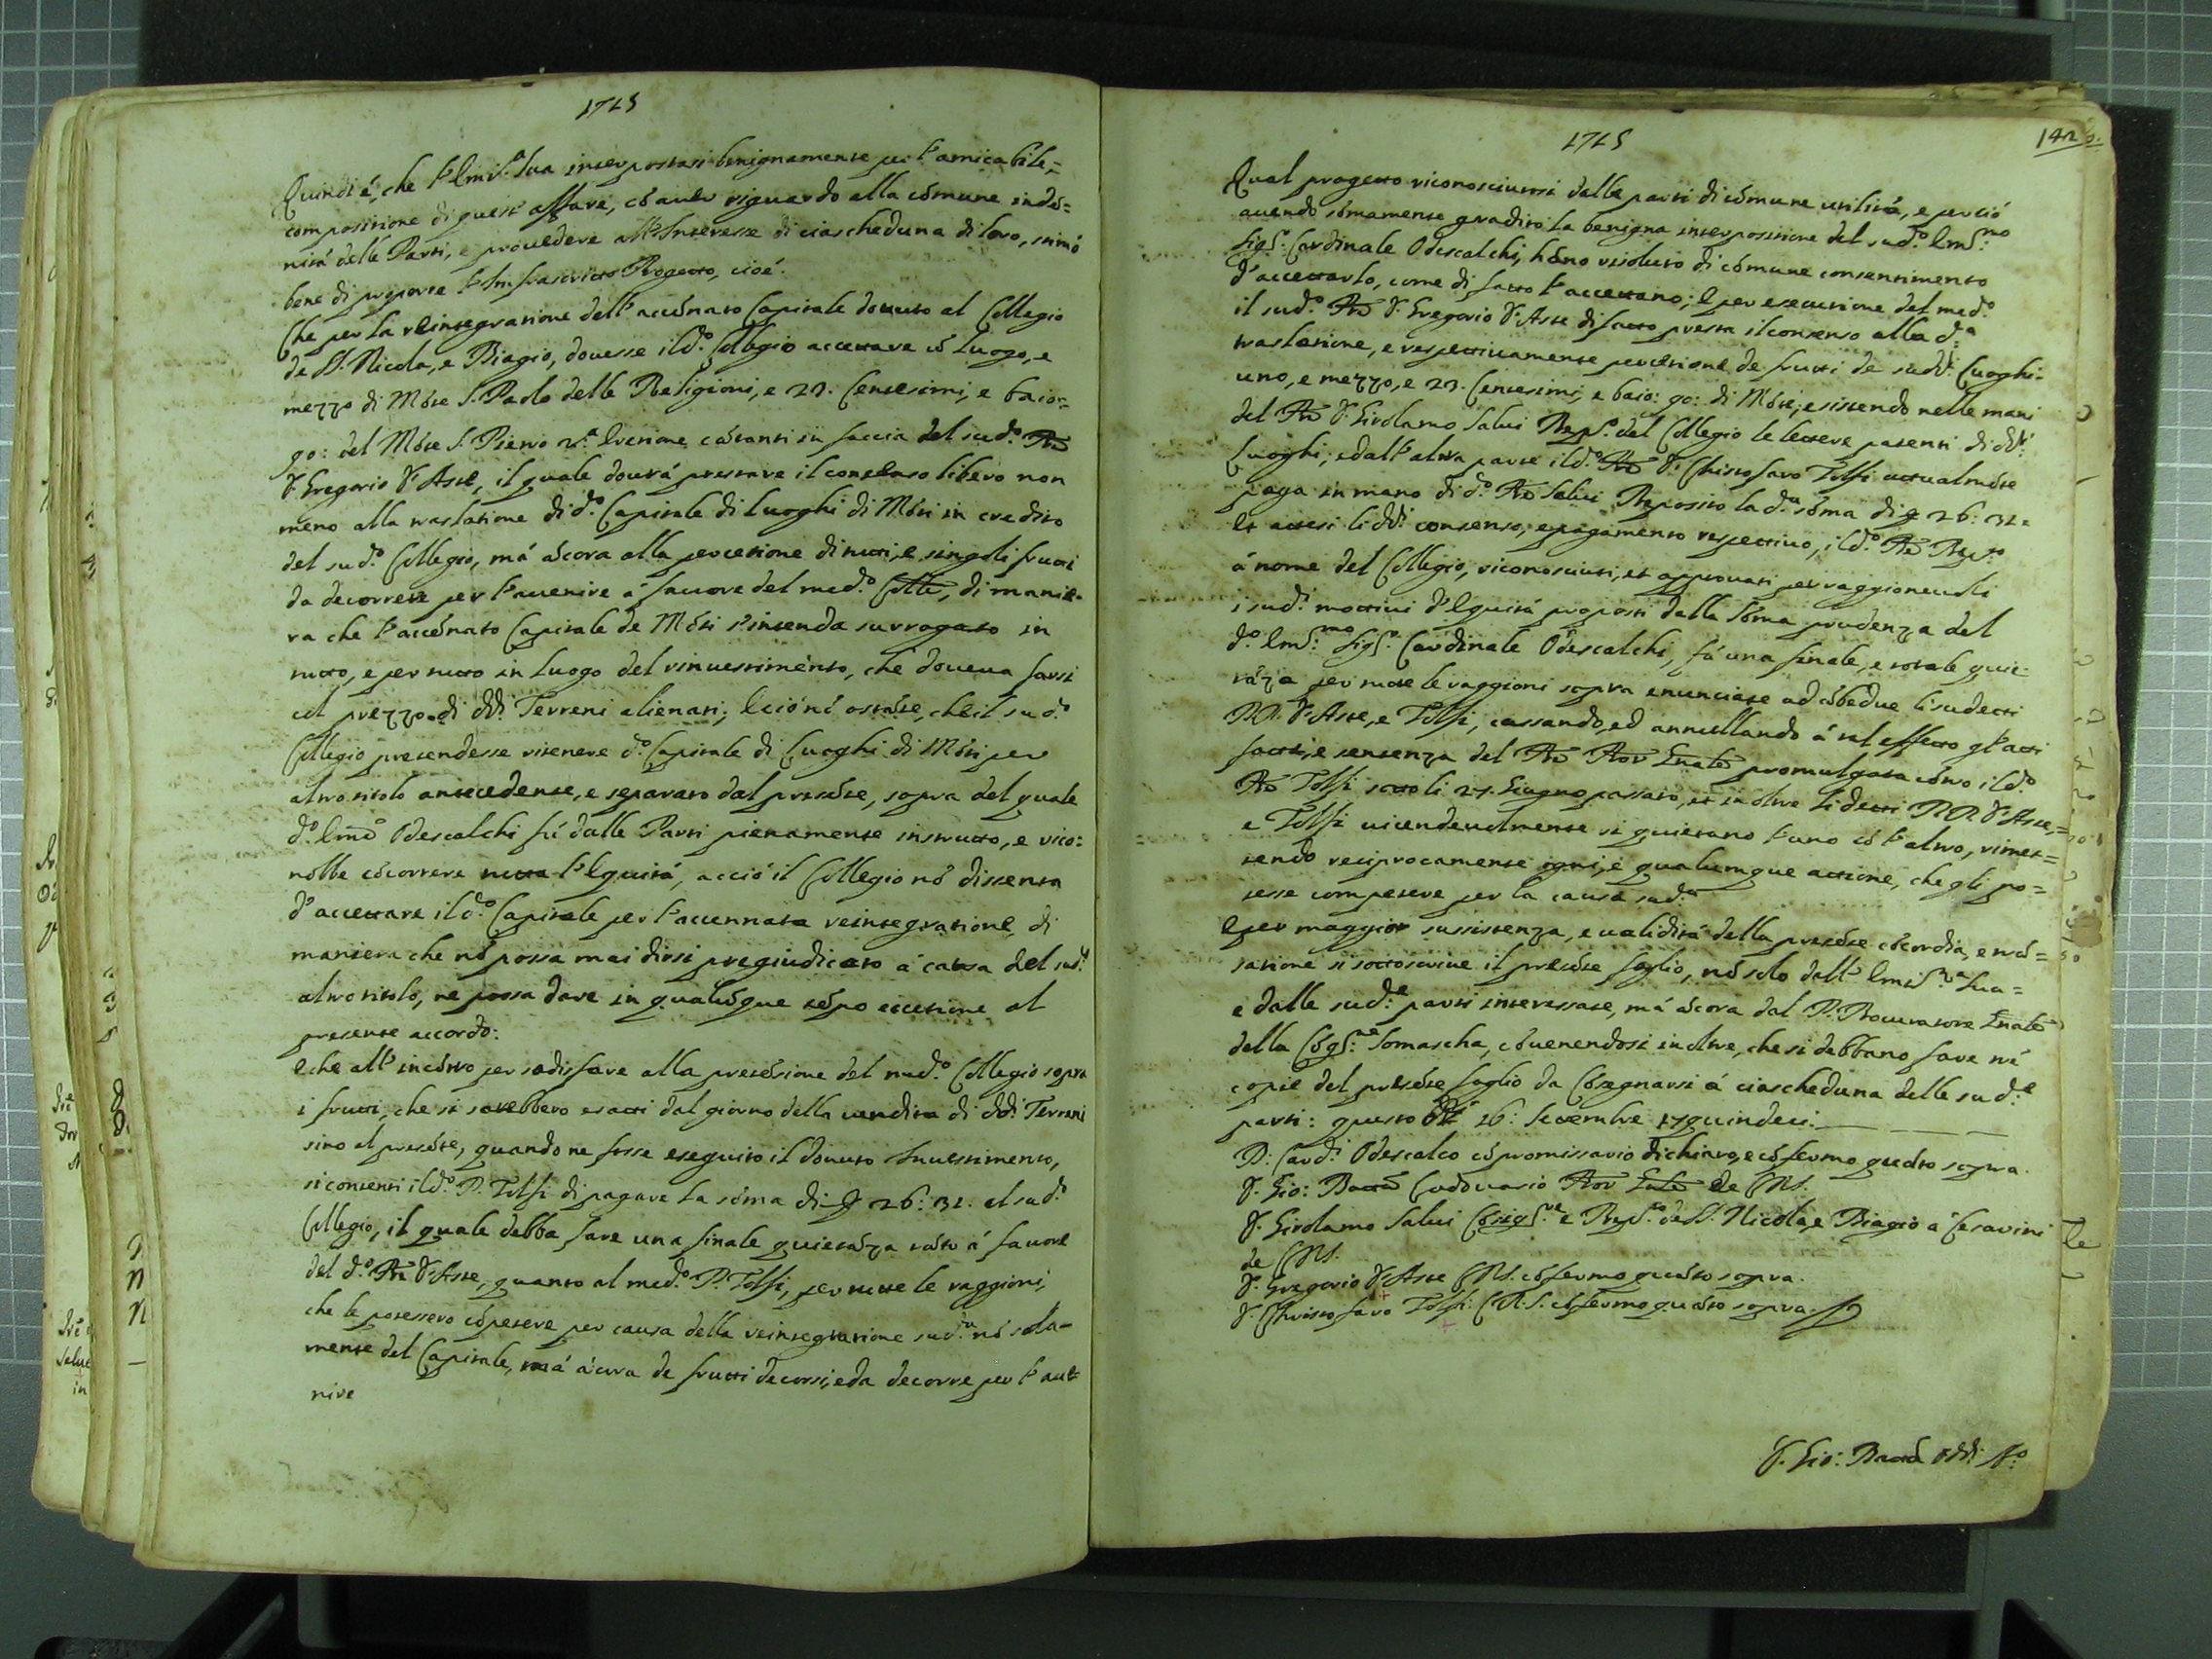 1715
Quindi é, che l'Emz.ª Sua interpostasi benignamente per l'amicabile
composizione di quest'affare, có auer riguardo alla cómune indé=
nitá delle Parti, e prouedere all'Interesse di ciascheduna di loro, stimó
bene di proporre l'Infrascritto Progetto, cioé.
Che per la reintegratione dell'accénato Capitale douuto al Collegio
de SS. Nicola, e Biagio, douesse il d.º Collegio accettare có luogo, e
mezzo di Móte S. Paolo delle Religioni, e 23. Centesimi, e baio:
90: del Móte S. Pietro 2.ª Eretione cátanti in faccia del sud.º Pre
D. Gregorio D'Aste, il quale dourá prestare il consenso libero non
meno alla traslatione di d.º Capitale di Luoghi di Móti in credito
del sud.º Collegio, má ácora alla percetione di tutti, e singoli frutti
da decorrere per l'auuenire á fauore del med.º Colle, di manie-
ra che l'accénato Capitale de Móti s'intenda surrogato in
tutto, e per tutto in luogo del rinuestimento, che doueua farsi
col prezzo di dd.i Terreni alienati; E ció nó ostáte, che il sud.º
Collegio pretendesse ritenere d.º Capitale di Luoghi di Móti per
altro titolo antecedente, e separato dal preséte, sopra del quale
d.º Emo Odescalchi fú dalle Parti pienamente instrutto, e rico:
nobbe cócorrere tutta l'Equitá, acció il Collegio nó dissenta
d'accettare il d.º Capitale per l'accennata reintegratione, di
maniera che nó possa mai dirsi pregiudicato á causa del sud.º
altro titolo, ne possa dare in qualúque tépo eccetione al
presente accordo:
E che all'incótro per sodisfare alla preténsione del med.º Collegio sopra
i frutti, che si sarebbero esatti dal giorno della vendita di dd.i Terreni
sino al preséte, quando ne fosse eseguito il douuto Inuestimento,
si contenti il d.º P. Tolfi di pagare la sóma di 26: 32. al sud.º
Collegio, il quale debba fare una finale quietáza táto á fauore
del d.º Pre D'Aste, quanto al med.º P. Tolfi, per tutte le raggioni,
che le potessero cópetere per causa della reintegratione sud.ª nó sola-
mente del Capitale, má ácora de frutti decorsi, e da decorre per l'aue
nire
1715
142
Qual progetto riconosciutosi dalle parti di cómune utilitá, e perció
auendo sómamente gradito la benigna interpositione del sud.º Em.mo
Sig.r Cardinale Odescalchi, háno risoluto di cómune consentimento
d'accettarlo, come di fatto l'accettano; E per esecutione del med.º
il sud.º Pre D. Gregorio D'Aste di fatto presta il consenso alla d.ª
traslatione, e respettiuamente percetione de frutti de sudd.i Luoghi
uno, e mezzo, e 23. Centesimi, e baio: 90: di Móte; esistendo nelle mani
del Pre D. Girolamo Salui Prep.º del Collegio le lettere patenti di dd.i
Luoghi; e dall'altra parte il d.º Pre D. Christofaro Tolfi attualméte
paga in mano di d.º Pre Salui Preposito la d.ª sóma di 26: 32.
Et attesi li dd.i consenso, e pagamento respettiuo, il d.º Pre Prep.to
á nome del Collegio, riconosciuti, et approuati per raggioneuoli
i sud.i mottiui d'Equitá proposti dalla sóma prudenza del
d.º Em.mo Sig.r Cardinale Odescalchi, fá una finale, e totale quie-
táza per tutte le raggioni sopra enunciate ad ábedue li sudetti
P.P. D'Aste, e Tolfi, cassando, ed annullando á tal effetto gl'atti
fatti, e sentenza del Pre Pror Gnale promulgata cótro il d.º
Pre Tolfi sotto li 27. Giugno passato, et in oltre li detti P.P. D'Aste,=
e Tolfi uicendeuolmente si quietano l'uno có l'altro, rimet=
tendo reciprocamente ogni, e qualunque attione, che gli po=
tesse competere per la causa sud.ª
E per maggior sussistenza, e ualiditá della preséte cócordia, e trás=
satione si sottoscriue il preséte foglio, nó solo dall'Emz.ª Sua=
e dalle sud.e parti interessate, má ácora dal P. Procuratore Gnale
della Cógr.ne Somascha, cóuenendosi in oltre, che si debbano fare tré
copie del preséte foglio da Cósegnarsi á ciascheduna delle sud.e
parti: questo dí 26: Settembre 17quindeci.
B: Card.l Odescalco cópromissario dichiaro, e cófermo quáto sopra.
D. Gio: Batta Codouario Pror Gnle de CRS.
D. Girolamo Salui Cósig.re e Prep.to de SS. Nicola, e Biagio á Cesarini
de CRS.
D. Gregorio D'Aste CRS. cófermo quáto sopra.
D. Christofaro Tolfi C.R.S. cófermo quáto sopra.
D. Gio: Batta Oddi